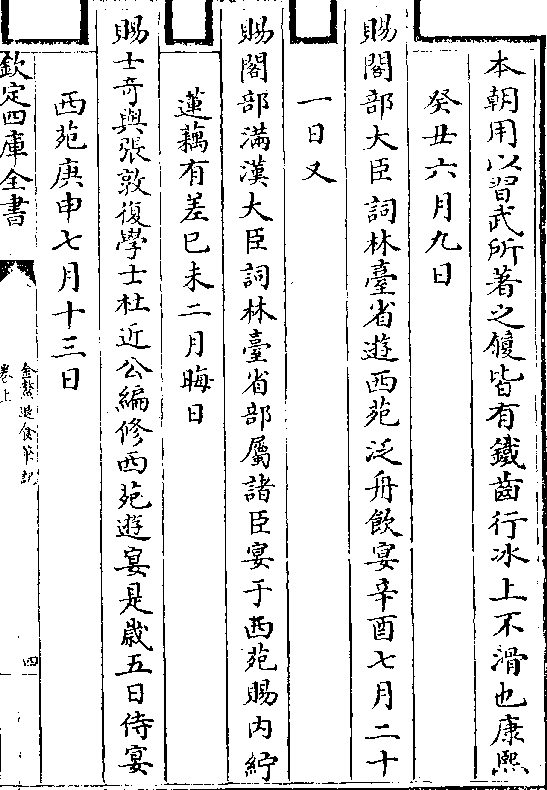 本朝用以習武所著之履皆有鐵齒行冰上不滑也康熙
癸丑六月九日
賜閣部大臣詞林臺省遊西苑泛舟飲宴辛酉七月二十
一日又
賜閣部滿漢大臣詞林臺省部屬諸臣宴于西苑賜内紵
蓮藕有差巳未二月晦日
賜士奇與張敦復學士杜近公編修西苑遊宴是歲五日侍宴
西苑庚申七月十三日
欽定四庫全書
金鰲退食筆記
卷上
四